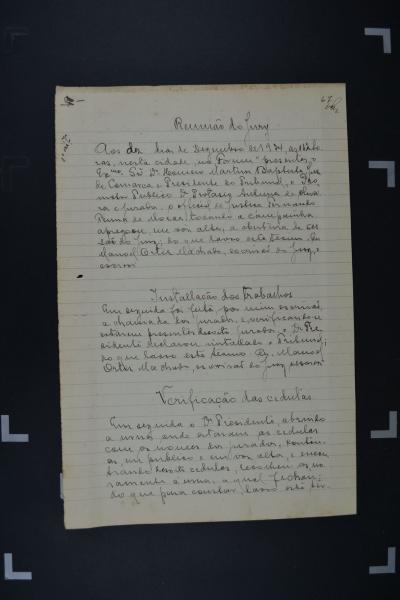 67
Reunião do Jury
Aos dez dias de Dezembro de 1934, as 11 ho
ras, nesta cidade, no "Forum" presentes, o
Exmo. Snr. Dr. Martins Baptista, Juiz
de Comarca e Presidente do Tribunal, o Pro
motor Publico Dr. de Olivei
ra e jurados, o official de justiça Fernando
tocando a campainha
apregoou, em voz alta, a abertura da ses
são do Jury; do que lavro este termo. Eu
Manoel Ortez Machado, escrivão do Jury, o
escrevi
Installação dos Trabalhos
Em seguida foi feita por mim escrivão
a chamada dos jurados, e verificando-se
estarem presentes desoito jurados, o Dr. Pre
sidente declarou installado o Tribunal;
do que lavro este termo. Eu, Manoel
Ortez Machado, escrivão do Jury, escrevi
Verificação das cedulas
Em seguida o Dr. Presidente, abrindo
a urna onde estavam as cedulas
com os nomes dos jurados, contou-
as, em publico e em voz alta, e encon
trando desoito cedulas, recolheu-as no
vamente á urna, a qual fechou;
do que para constar, lavro este ter-